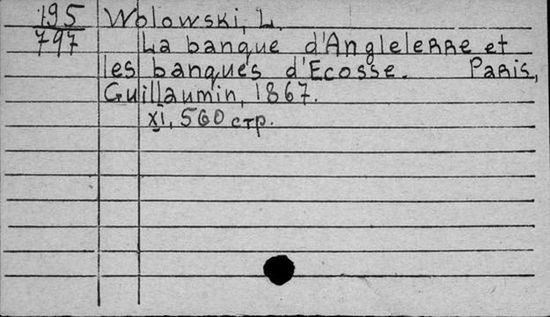 195 Wolowski, L.
797 La banque d'Anglelerre et
les banques d'Ecosse. Paris,
Guillaumin, 1867.
XI, 560 стр.